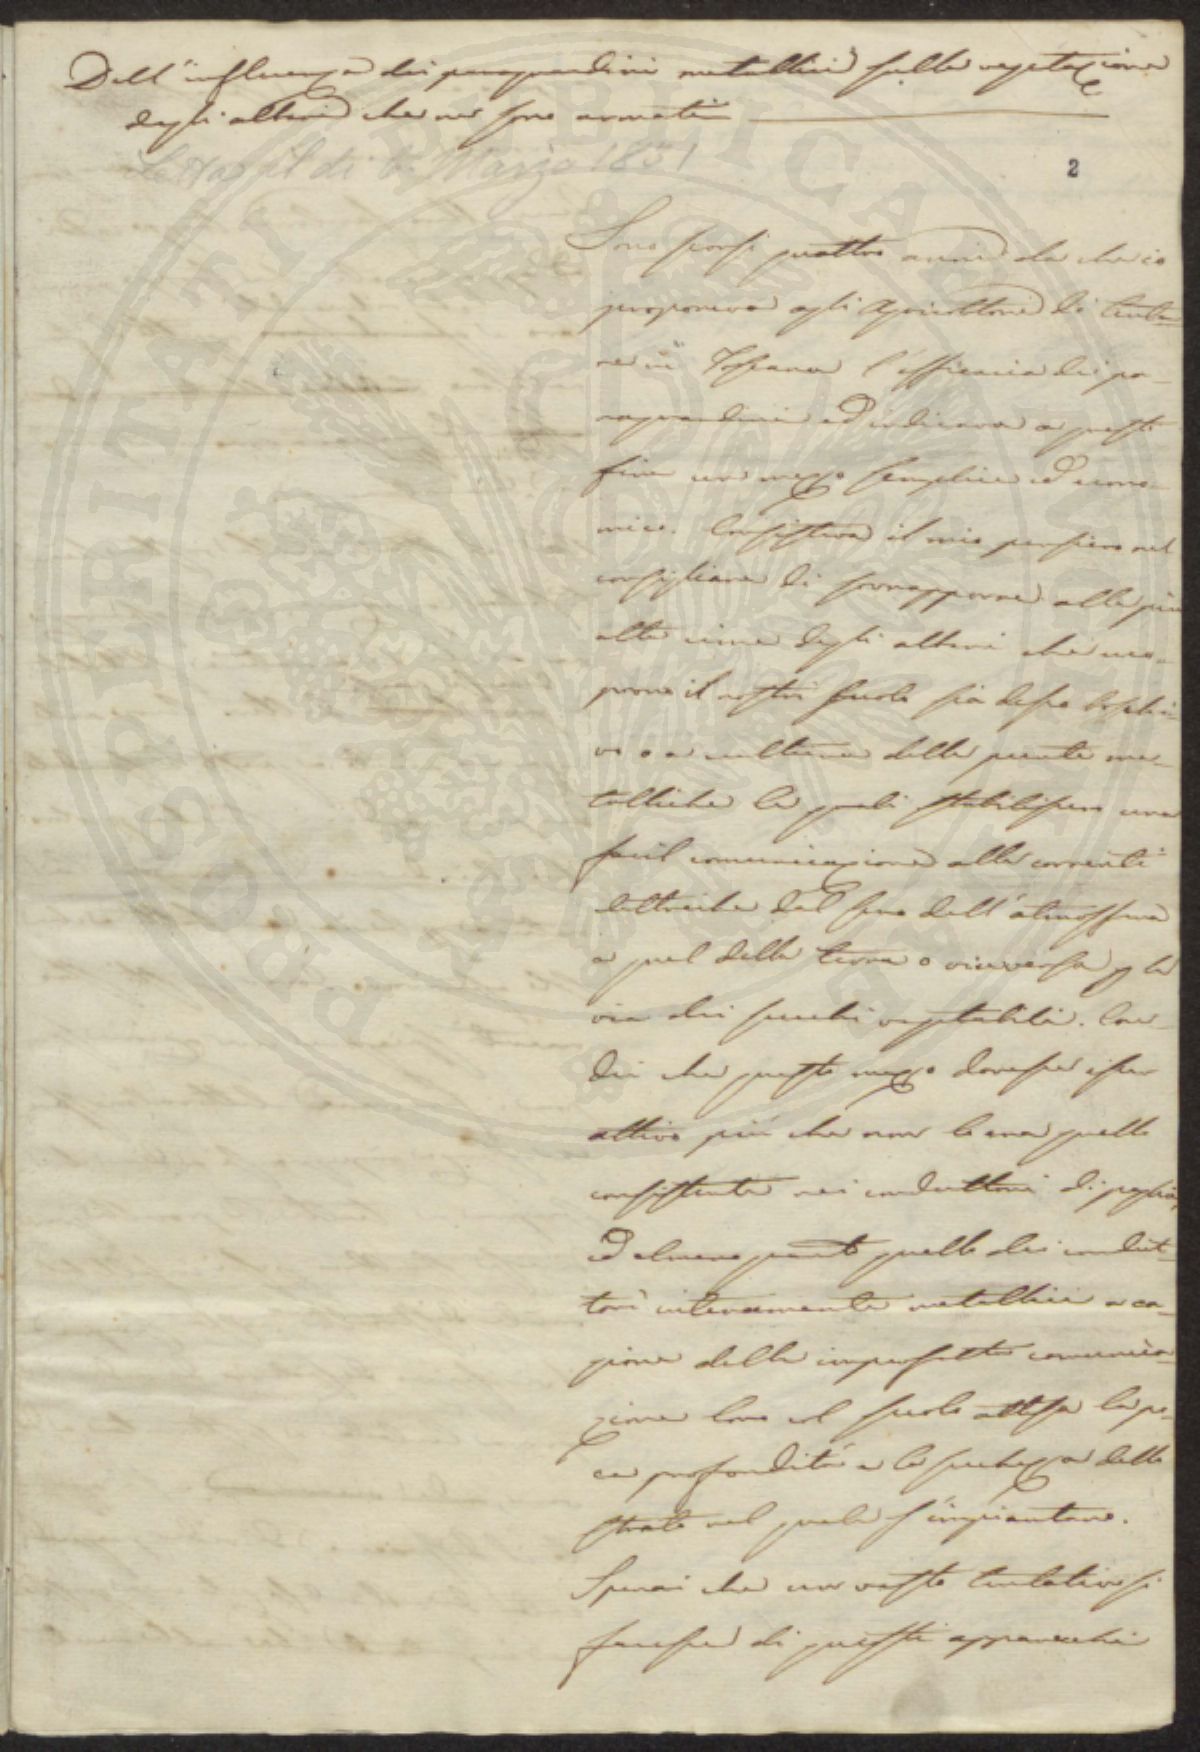 Dell'influenza dei paragrandini metallici sulla vegetazione
degli alberi che ne sono armati
Letta il dì 6. Marzo 1831
2
Sono scorsi quattro anni da che io
proponeva agli Agricoltori di tenta-
re in Toscana l'efficacia dei pa-
ragrandini ed indicava a questo
fine un mezzo semplice ed econo-
mico. Consisteva il mio pensiero nel
consigliare di sovrapporre alle più
alte cime degli alberi che cuo-
prono il nostro suolo sia desso boschi-
vo o a cultura delle punte me-
talliche le quali stabilissero una
facil comunicazione alle correnti
elettriche dal seno dell'atmosfera
a quel della terra o viceversa p la
via dei succhi vegetabili. Cre-
dei che questo mezzo dovesse esser
attivo più che non lo era quello
consistente nei conduttori di paglia,
ed almeno quanto quello dei condut-
tori interamente metallici a ca-
gione della imperfetta comunica-
zione loro col suolo attesa la po-
ca profondità e la secchezza dello
strato nel quale s'impiantano.
Sperai che un vasto tentativo si
facesse di questi apparecchi
PROSPERITATI PUBLICAE AUGENDAE